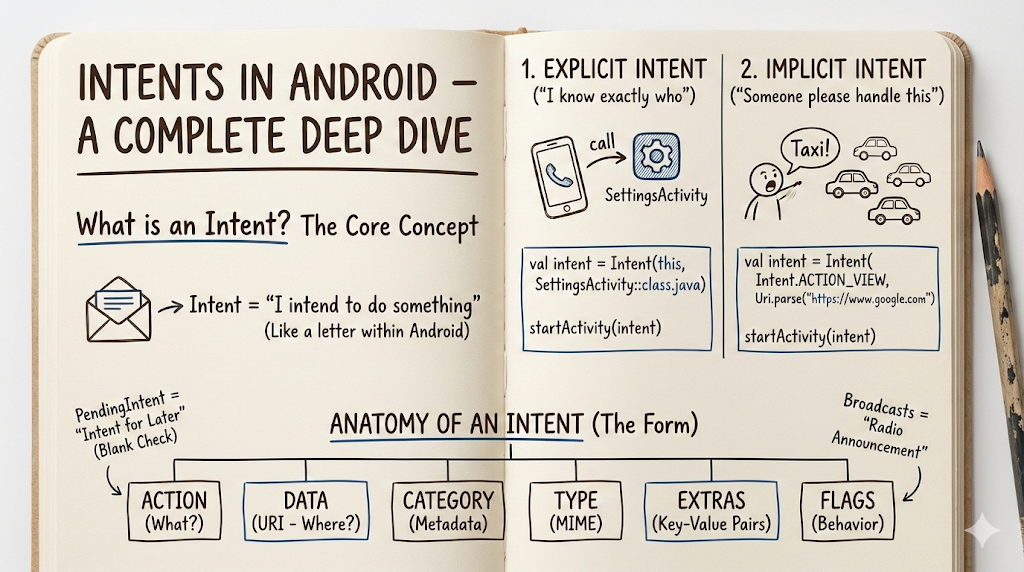 INTENTS IN ANDROID –
A COMPLETE DEEP DIVE
What is an Intent? The Core Concept
Intent = "I intend to do something"
(Like a letter within Android)
1. EXPLICIT INTENT
("I know exactly who")
call
SettingsActivity
val intent = Intent(this,
SettingsActivity::class.java)
startActivity(intent)
2. IMPLICIT INTENT
("Someone please handle this")
Taxi!
val intent = Intent(
Intent.ACTION_VIEW,
Uri.parse("https://www.google.com")
startActivity(intent)
PendingIntent =
"Intent for Later"
(Blank Check)
ANATOMY OF AN INTENT (The Form)
Broadcasts =
"Radio
Announcement"
ACTION
(What?)
DATA
(URI – Where?)
CATEGORY
(Metadata)
TYPE
(MIME)
EXTRAS
(Key-Value Pairs)
FLAGS
(Behavior)